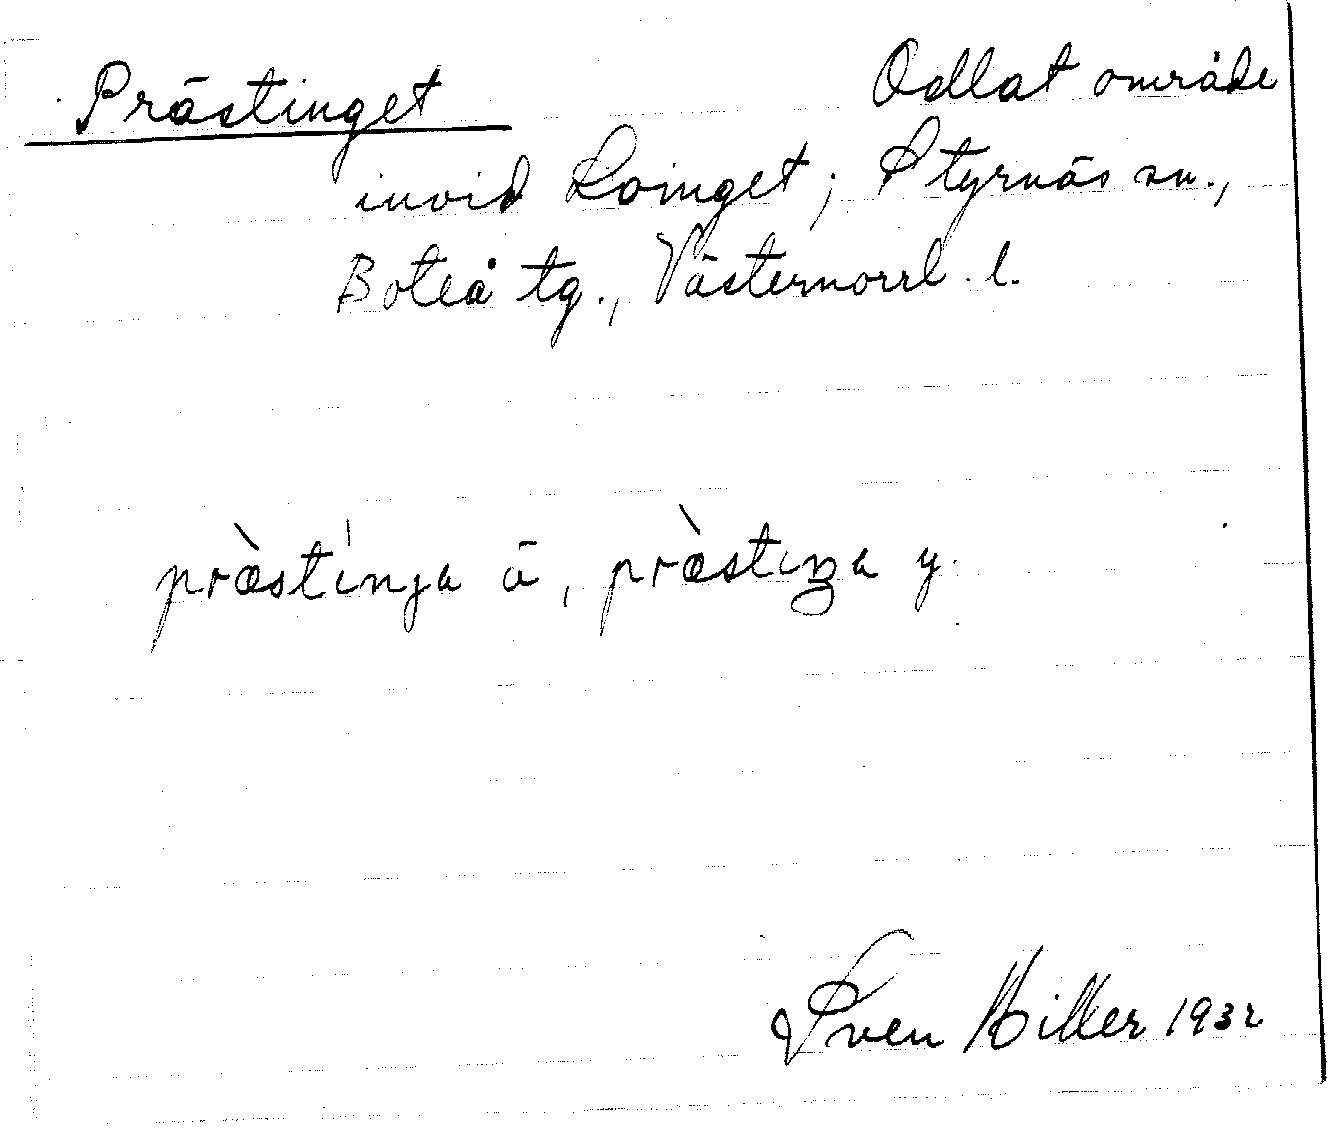 Prästinget Odlat område
invid Loinget; Styrnäs sn.,
Boteå tg., Västernorrl. l.
præ̀stínja ä, præ̀stiŋa y.
Sven Hiller 1932